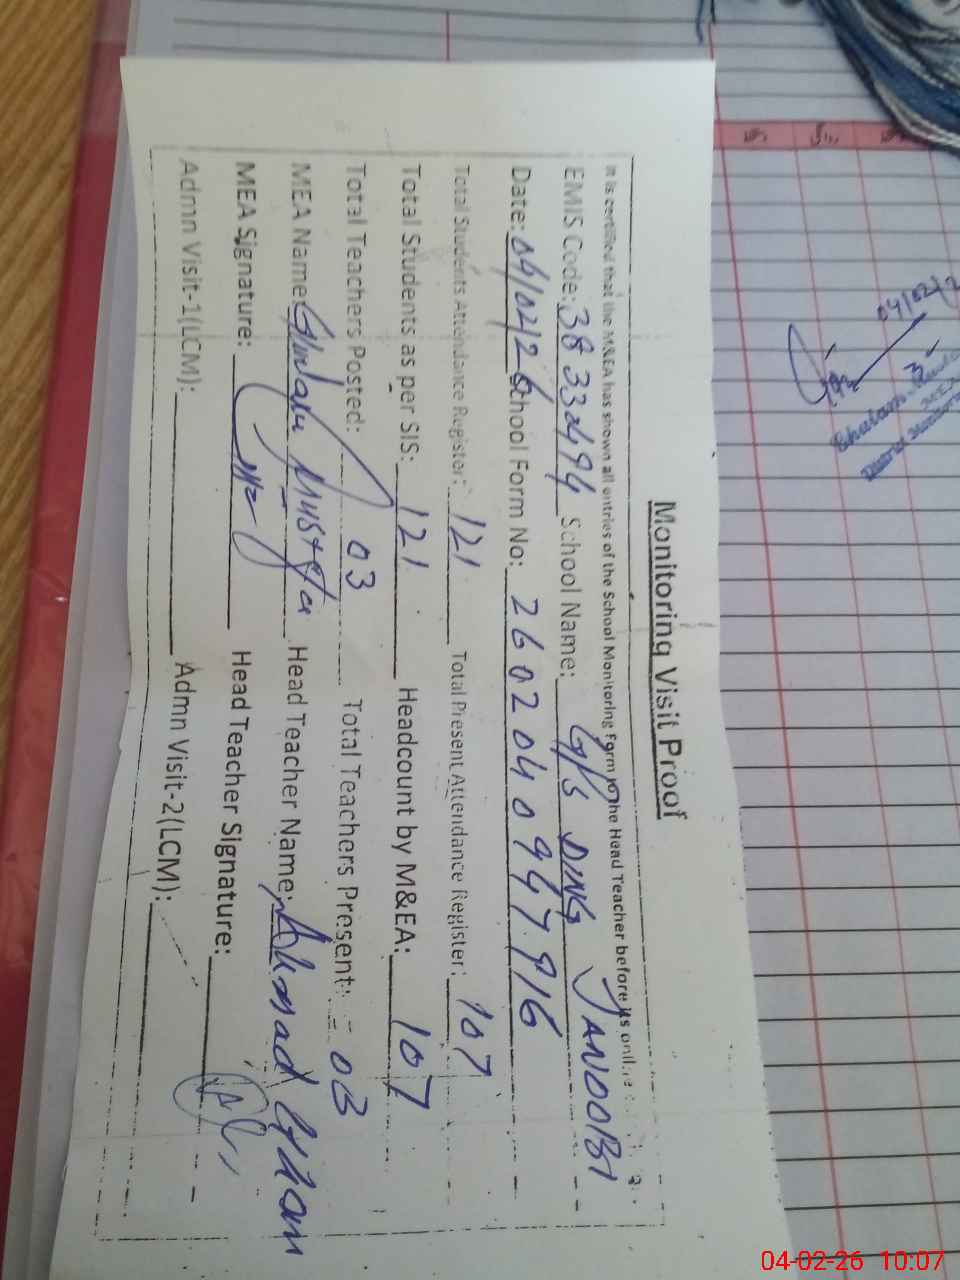 Monitoring Visit Proof
It is certified that the M&EA has shown all entries of the School Monitoring Form to the Head Teacher before its
EMIS Code: 38332494 School Name: G/S DING JANOOBI
Date: 04/02/26 School Form No: 2602040947916
Total Students Attendance Register: 121 Total Present Attendance Register: 107
Total Students as per SIS: 121 Headcount by M&EA: 107
Total Teachers Posted: 03 Total Teachers Present: 03
MEA Name: Ghulam Mustafa Head Teacher Name: Ahmad Ghan
MEA Signature: Head Teacher Signature:
Admn Visit-1(LCM): Admn Visit-2(LCM):
04/02/2
Ghulam
District
04-02-26 10:07